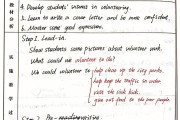 教材分析
4. Develop students' interest in volunteering.
5. Learn to write a cover letter and be more confident.
6. Master some good expressions.
实施教学过程
Step 1. Lead-in.
Show students some pictures about volunteer work.
What could we volunteer to do?
We could volunteer to help clean up the city parks.
help keep the traffic in order.
visit the sick kids.
give out food to the poor people
Step 2.